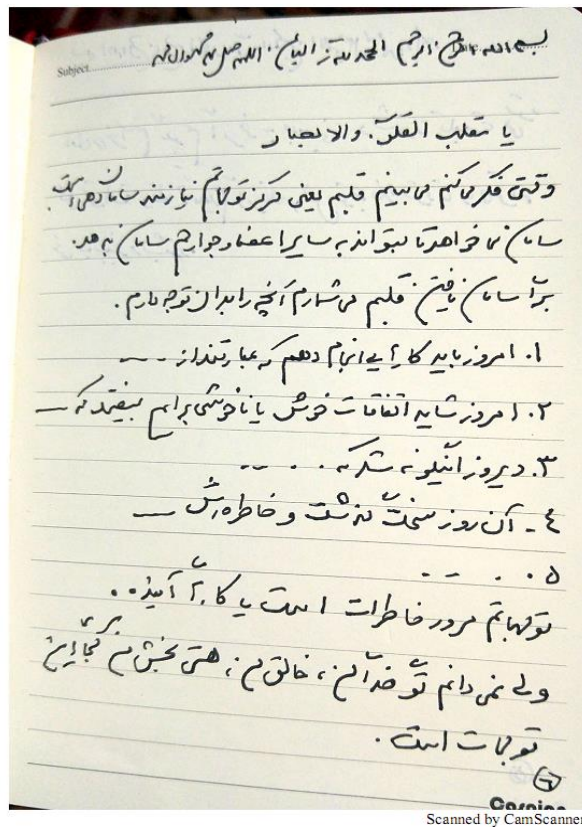 بسم الله الرحمن الرحیم الحمد لله رب العالمین. اللهم صل علی محمد و آل محمد
Subject
یا مقلب القلوب والابصار
وقتی فکر می‌کنم می‌بینم قلبم یعنی مرکز توجهاتم نیازمند ساماندهی است
سامان می‌خواهد تا بتواند به سایر اعضاء و جوارحم سامان بدهد.
برای سامان یافتن قلبم می‌شمارم آنچه را بدان توجه دارم.
۱. امروز باید کارهایی انجام دهم که عبارتند از ...
۲. امروز شاید اتفاقات خوش یا ناخوشی برایم بیفتد که ...
۳. دیروز اینگونه شد که .....
٤- آن روز سخت گذشت و خاطره‌اش ...
۵. . . . .
توجهاتم مرور خاطرات است یا کارهای آینده..
ولی نمی‌دانم تو خدای من، خالق من، هستی بخش من کجای این
توجهات است.
Scanned by CamScanner